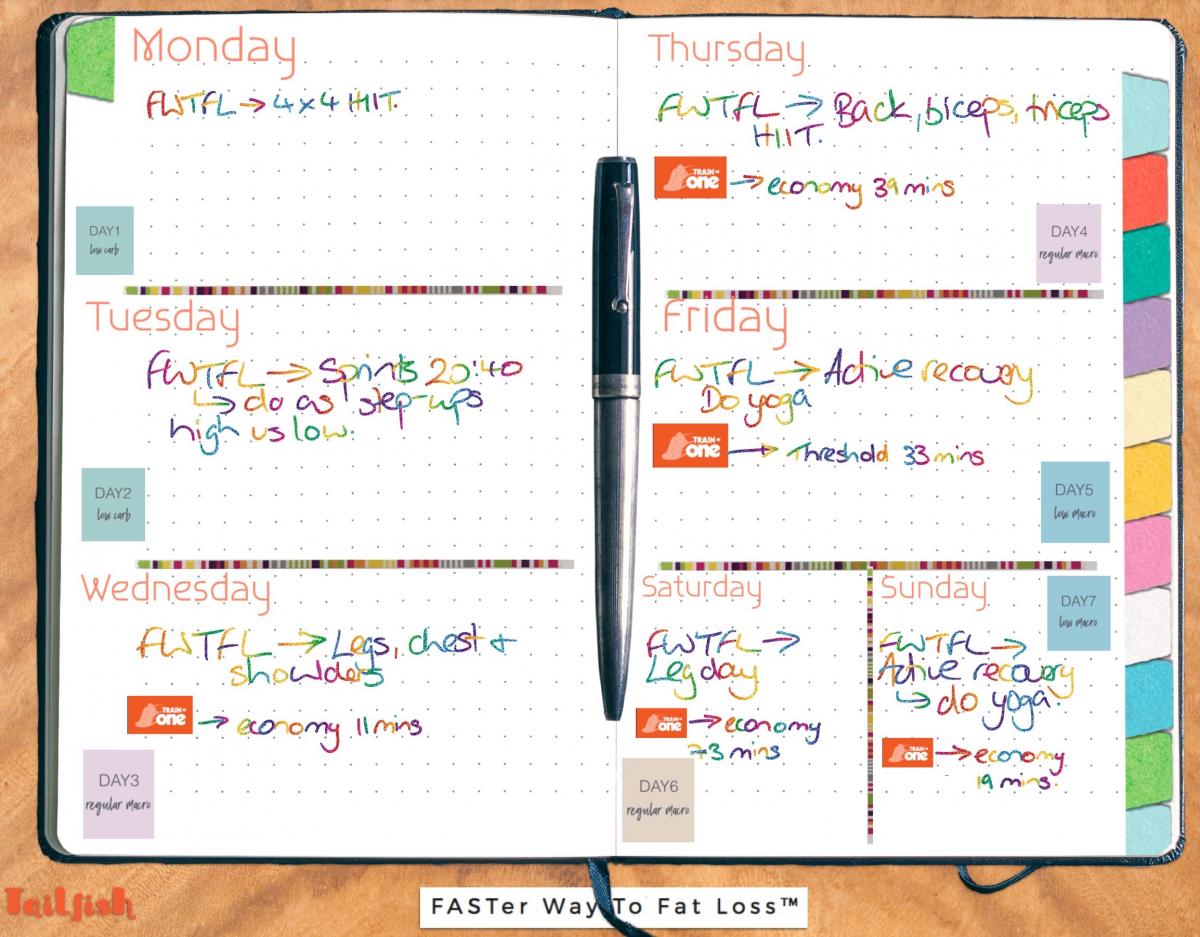 Monday
FWTFL → 4x4 HIIT.
DAY1
low carb
Tuesday
FWTFL → Sprints 20:40
↳ do as step-ups
high vs low.
DAY2
low carb
Wednesday
FWTFL → Legs, chest +
showlders
TRAIN AS
one → economy 11 mins
DAY3
regular macro
Thursday
FWTFL → Back, biceps, triceps
HIIT.
TRAIN AS
one → economy 39 mins
DAY4
regular macro
Friday
FWTFL → Active recovery
Do yoga
TRAIN AS
one → Threshold 33 mins
DAY5
low macro
Saturday
FWTFL →
Leg day
TRAIN AS
one → economy
73 mins
DAY6
regular macro
Sunday
DAY7
low macro
FWTFL →
Active recovery
↳ do yoga.
TRAIN AS
one → economy
19 mins.
Tailfish
FASTer Way To Fat Loss™